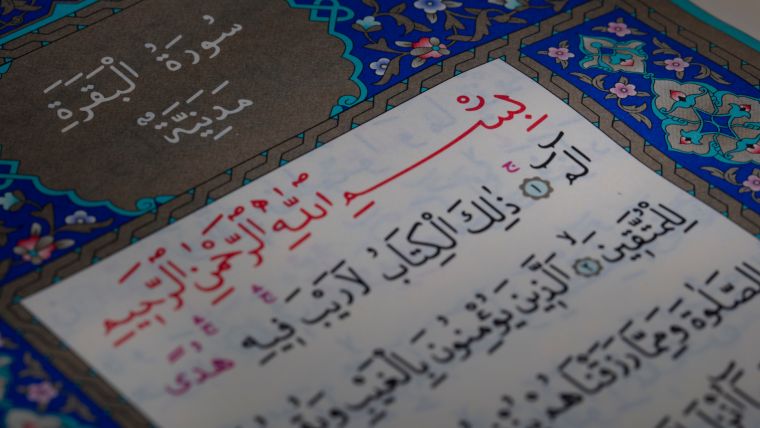 سُورَةُ الْبَقَرَةِ
مَدَنِيَّةٌ
بِسْمِ اللَّهِ الرَّحْمَٰنِ الرَّحِيمِ
الٓمٓ ۝١ ذَٰلِكَ الْكِتَابُ لَا رَيْبَ فِيهِ هُدًى
لِلْمُتَّقِينَ ۝٢ الَّذِينَ يُؤْمِنُونَ بِالْغَيْبِ
الصَّلَوٰةَ وَمِمَّا رَزَقْنَاهُمْ